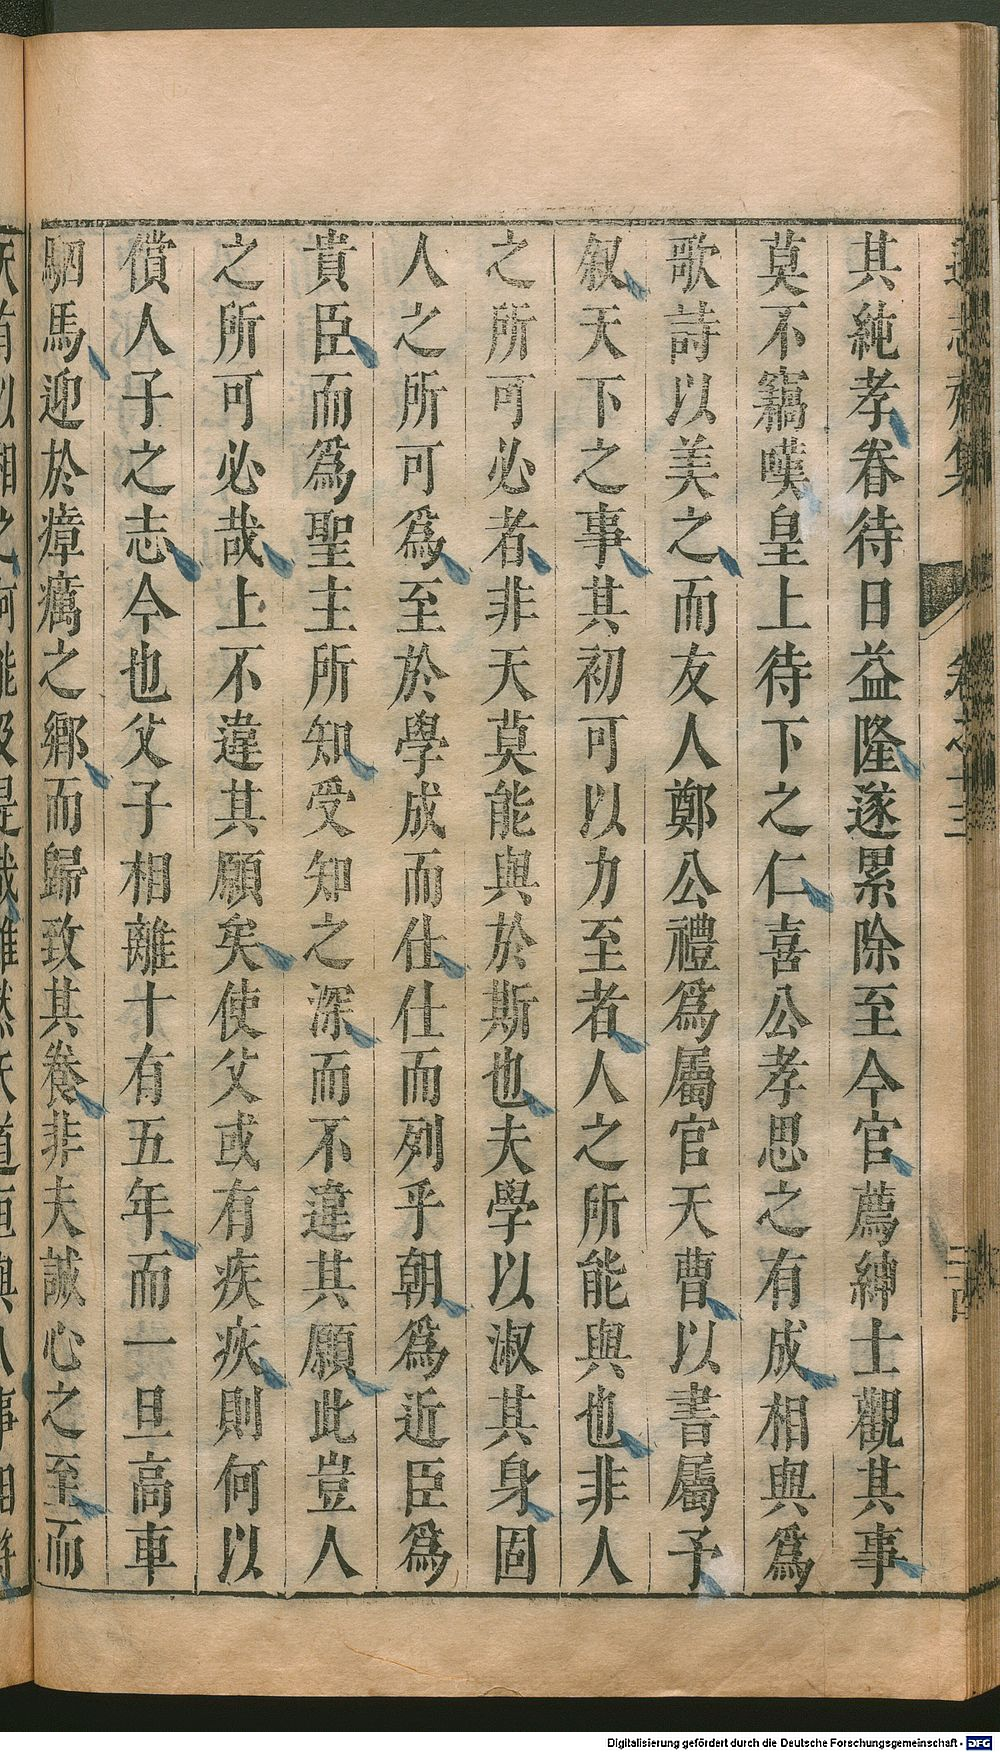 其純孝眷待日益隆遂累除至今官薦紳士觀其事
莫不竊嘆皇上待下之仁喜公孝思之有成相與爲
歌詩以美之而友人鄭公禮爲屬官天曹以書屬予
叙天下之事其初可以力至者人之所能與也非人
之所可必者非天莫能與於斯也夫學以淑其身固
人之所可爲至於學成而仕仕而列乎朝爲近臣爲
貴臣而爲聖主所知受知之深而不違其願此豈人
之所可必哉上不違其願矣使父或有疾疢則何以
償人子之志今也父子相離十有五年而一旦高車
駟馬迎於瘴癘之鄉而歸致其養非夫誠心之至而
Digitalisierung gefördert durch die Deutsche Forschungsgemeinschaft - DFG